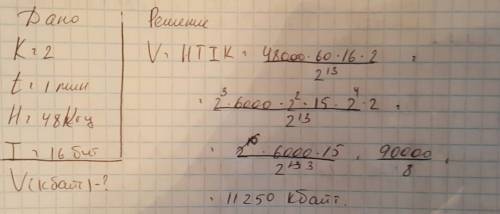 Дано
K = 2
t = 1 мин
H = 48 Кгц
I = 16 бит
V(кбайт) - ?
Решение
V = HTIK = 48000·60·16·2 / 2^13 =
= 2^3·6000·2^2·15·2^4·2 / 2^13 =
= 2^10·6000·15 / 2^13 3 = 90000 / 8 =
= 11250 кбайт.